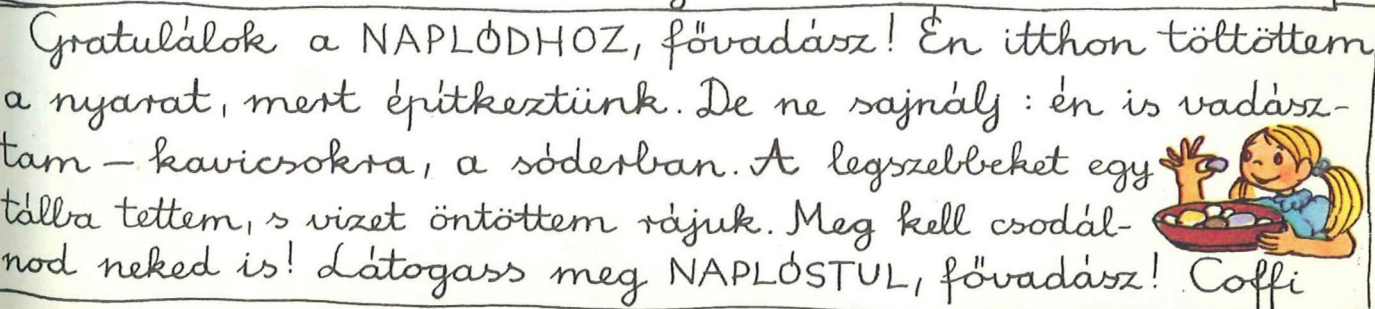 Gratulálok a NAPLÓDHOZ, fővadász! Én itthon töltöttem
a nyarat, mert építkeztünk. De ne sajnálj: én is vadász-
tam – kavicsokra, a sóderban. A legszebbeket egy
tálba tettem, s vizet öntöttem rájuk. Meg kell csodál-
nod neked is! Látogass meg NAPLÓSTUL, fővadász! Coffi